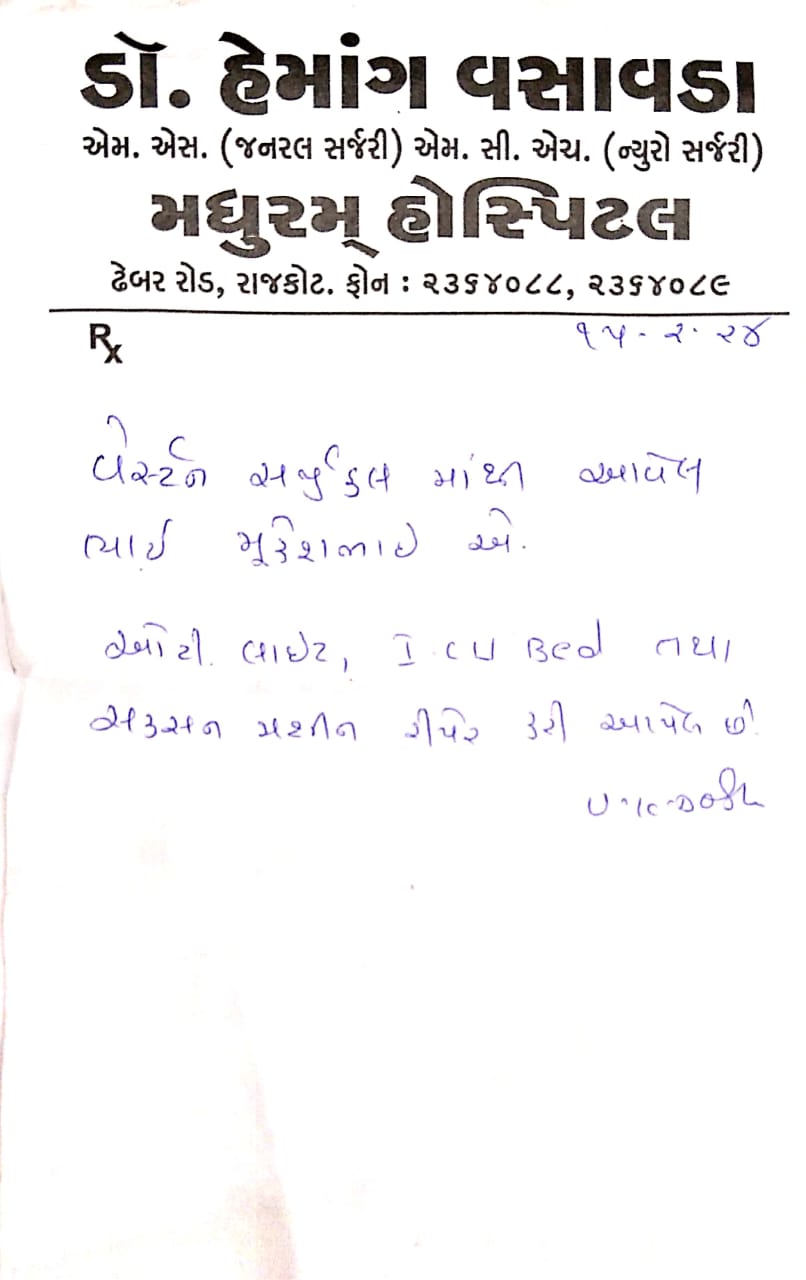 ડૉ. હેમાંગ વસાવડા
એમ. એસ. (જનરલ સર્જરી) એમ. સી. એચ. (ન્યુરો સર્જરી)
મધુરમ્ હોસ્પિટલ
ઢેબર રોડ, રાજકોટ. ફોન : ૨૩૬૪૦૮૮, ૨૩૬૪૦૮૯
Rx
૧૫-૨-૨૪
વેસ્ટર્ન સર્જીકલ માંથી આવેલ
ભાઈ મૂકેશભાઈ એ.
ઓટી. લાઇટ, I.CU Bed તથા
સકસન મશીન રીપેર કરી આપેલ છે.